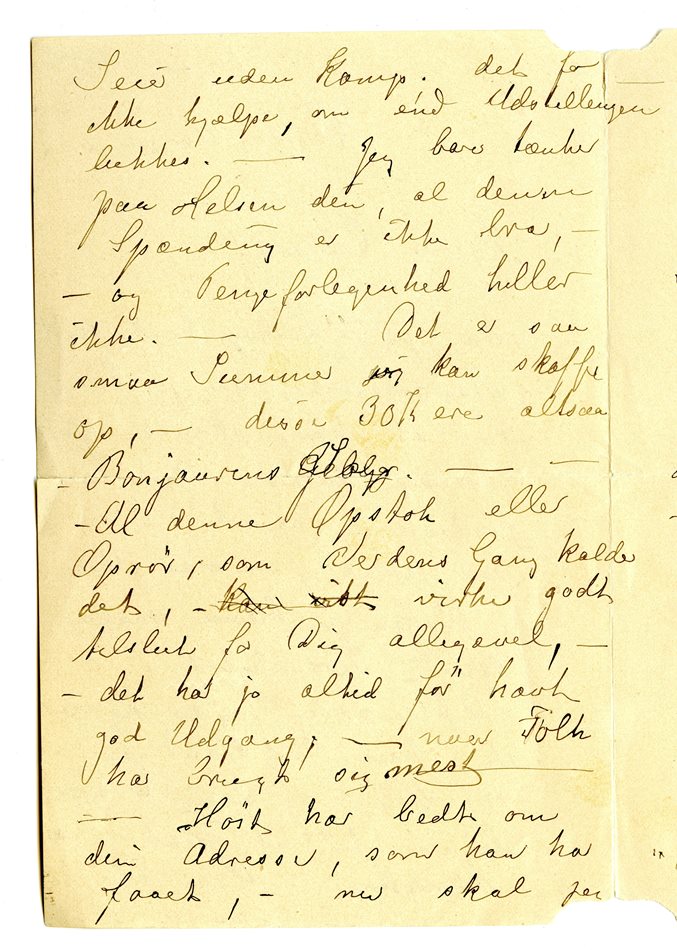 Seir uden Kamp. det fo
ikke hjælpe, om end Udstillengen
lukkes. — Jeg bare tænker
paa Helsen din, al denne
Spænding er ikke bra, —
— og Pengeforlegenhed heller
ikke. — Det er saa
smaa Summer jeg kan skaffe
op, — disse 30 K ere altsaa
- Bonjourens
- Al denne Opstoh eller
Oprör, som Verdens Gang kalder
det, - kan vist virke godt
tilslut for Dig allegavel, —
— det har jo altid för havt
god Udgang, — naar Folk
har brugt sig mest
— Höst har bedt om
din Adresse, som han ha
faaet, - nu skal jeg